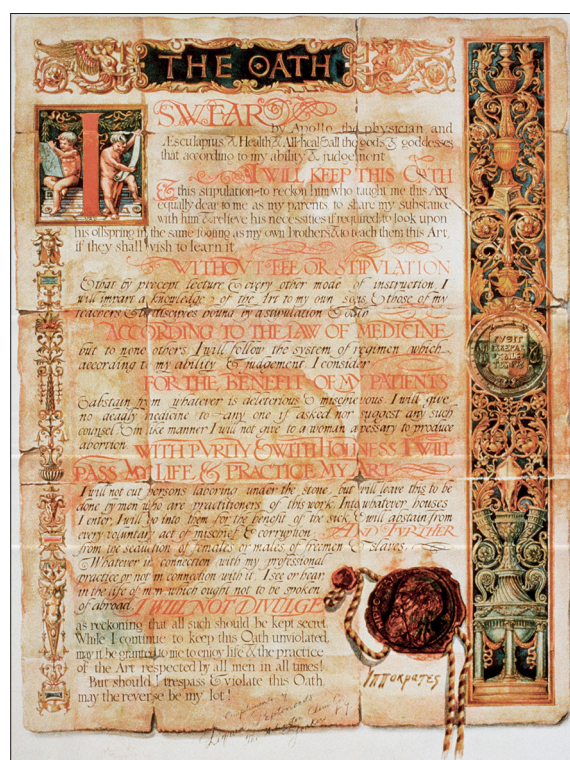 THE OATH
I SWEAR
by Apollo the physician and
Æsculapius & Health & All-heal & all the gods & goddesses
that according to my ability & judgement
I WILL KEEP THIS OATH
& this stipulation – to reckon him who taught me this Art
equally dear to me as my parents, to share my substance
with him & relieve his necessities if required, to look upon
his offspring in the same footing as my own brothers & to teach them this Art,
if they shall wish to learn it
WITHOVT FEE OR STIPVLATION
& that by precept lecture & every other mode of instruction I
will impart a knowledge of the Art to my own sons & those of my
teachers & to disciples bound by a stipulation & oath
ACCORDING TO THE LAW OF MEDICINE
but to none others I will follow the system of regimen which
according to my ability & judgement I consider
FOR THE BENEFIT OF MY PATIENTS
& abstain from whatever is deleterious & mischievous. I will give
no deadly medicine to any one if asked nor suggest any such
counsel & in like manner I will not give to a woman a pessary to produce
abortion WITH PVRITY & WITH HOLINESS I WILL
PASS MY LIFE & PRACTICE MY ART
I will not cut persons laboring under the stone but will leave this to be
done by men who are practitioners of this work. Into whatever houses
I enter, I will go into them for the benefit of the sick & will abstain from
every voluntary act of mischief & corruption AND FVRTHER
from the seduction of females or males of freemen & slaves.
Whatever in connection with my professional
practice or not in connection with it I see or hear
in the life of men which ought not to be spoken
of abroad, I WILL NOT DIVULGE
as reckoning that all such should be kept secret
While I continue to keep this Oath unviolated,
may it be granted to me to enjoy life & the practice
of the Art respected by all men in all times!
But should I trespass & violate this Oath
may the reverse be my lot!
Ιπποκρατες